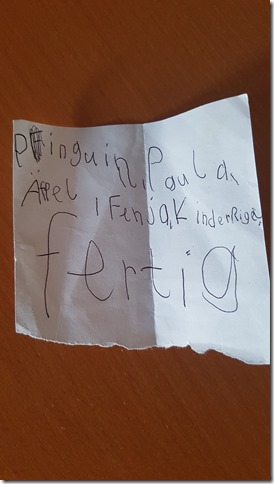 Pinguin, Paula,
Äppel, Fenja, Kinderrige,
fertig